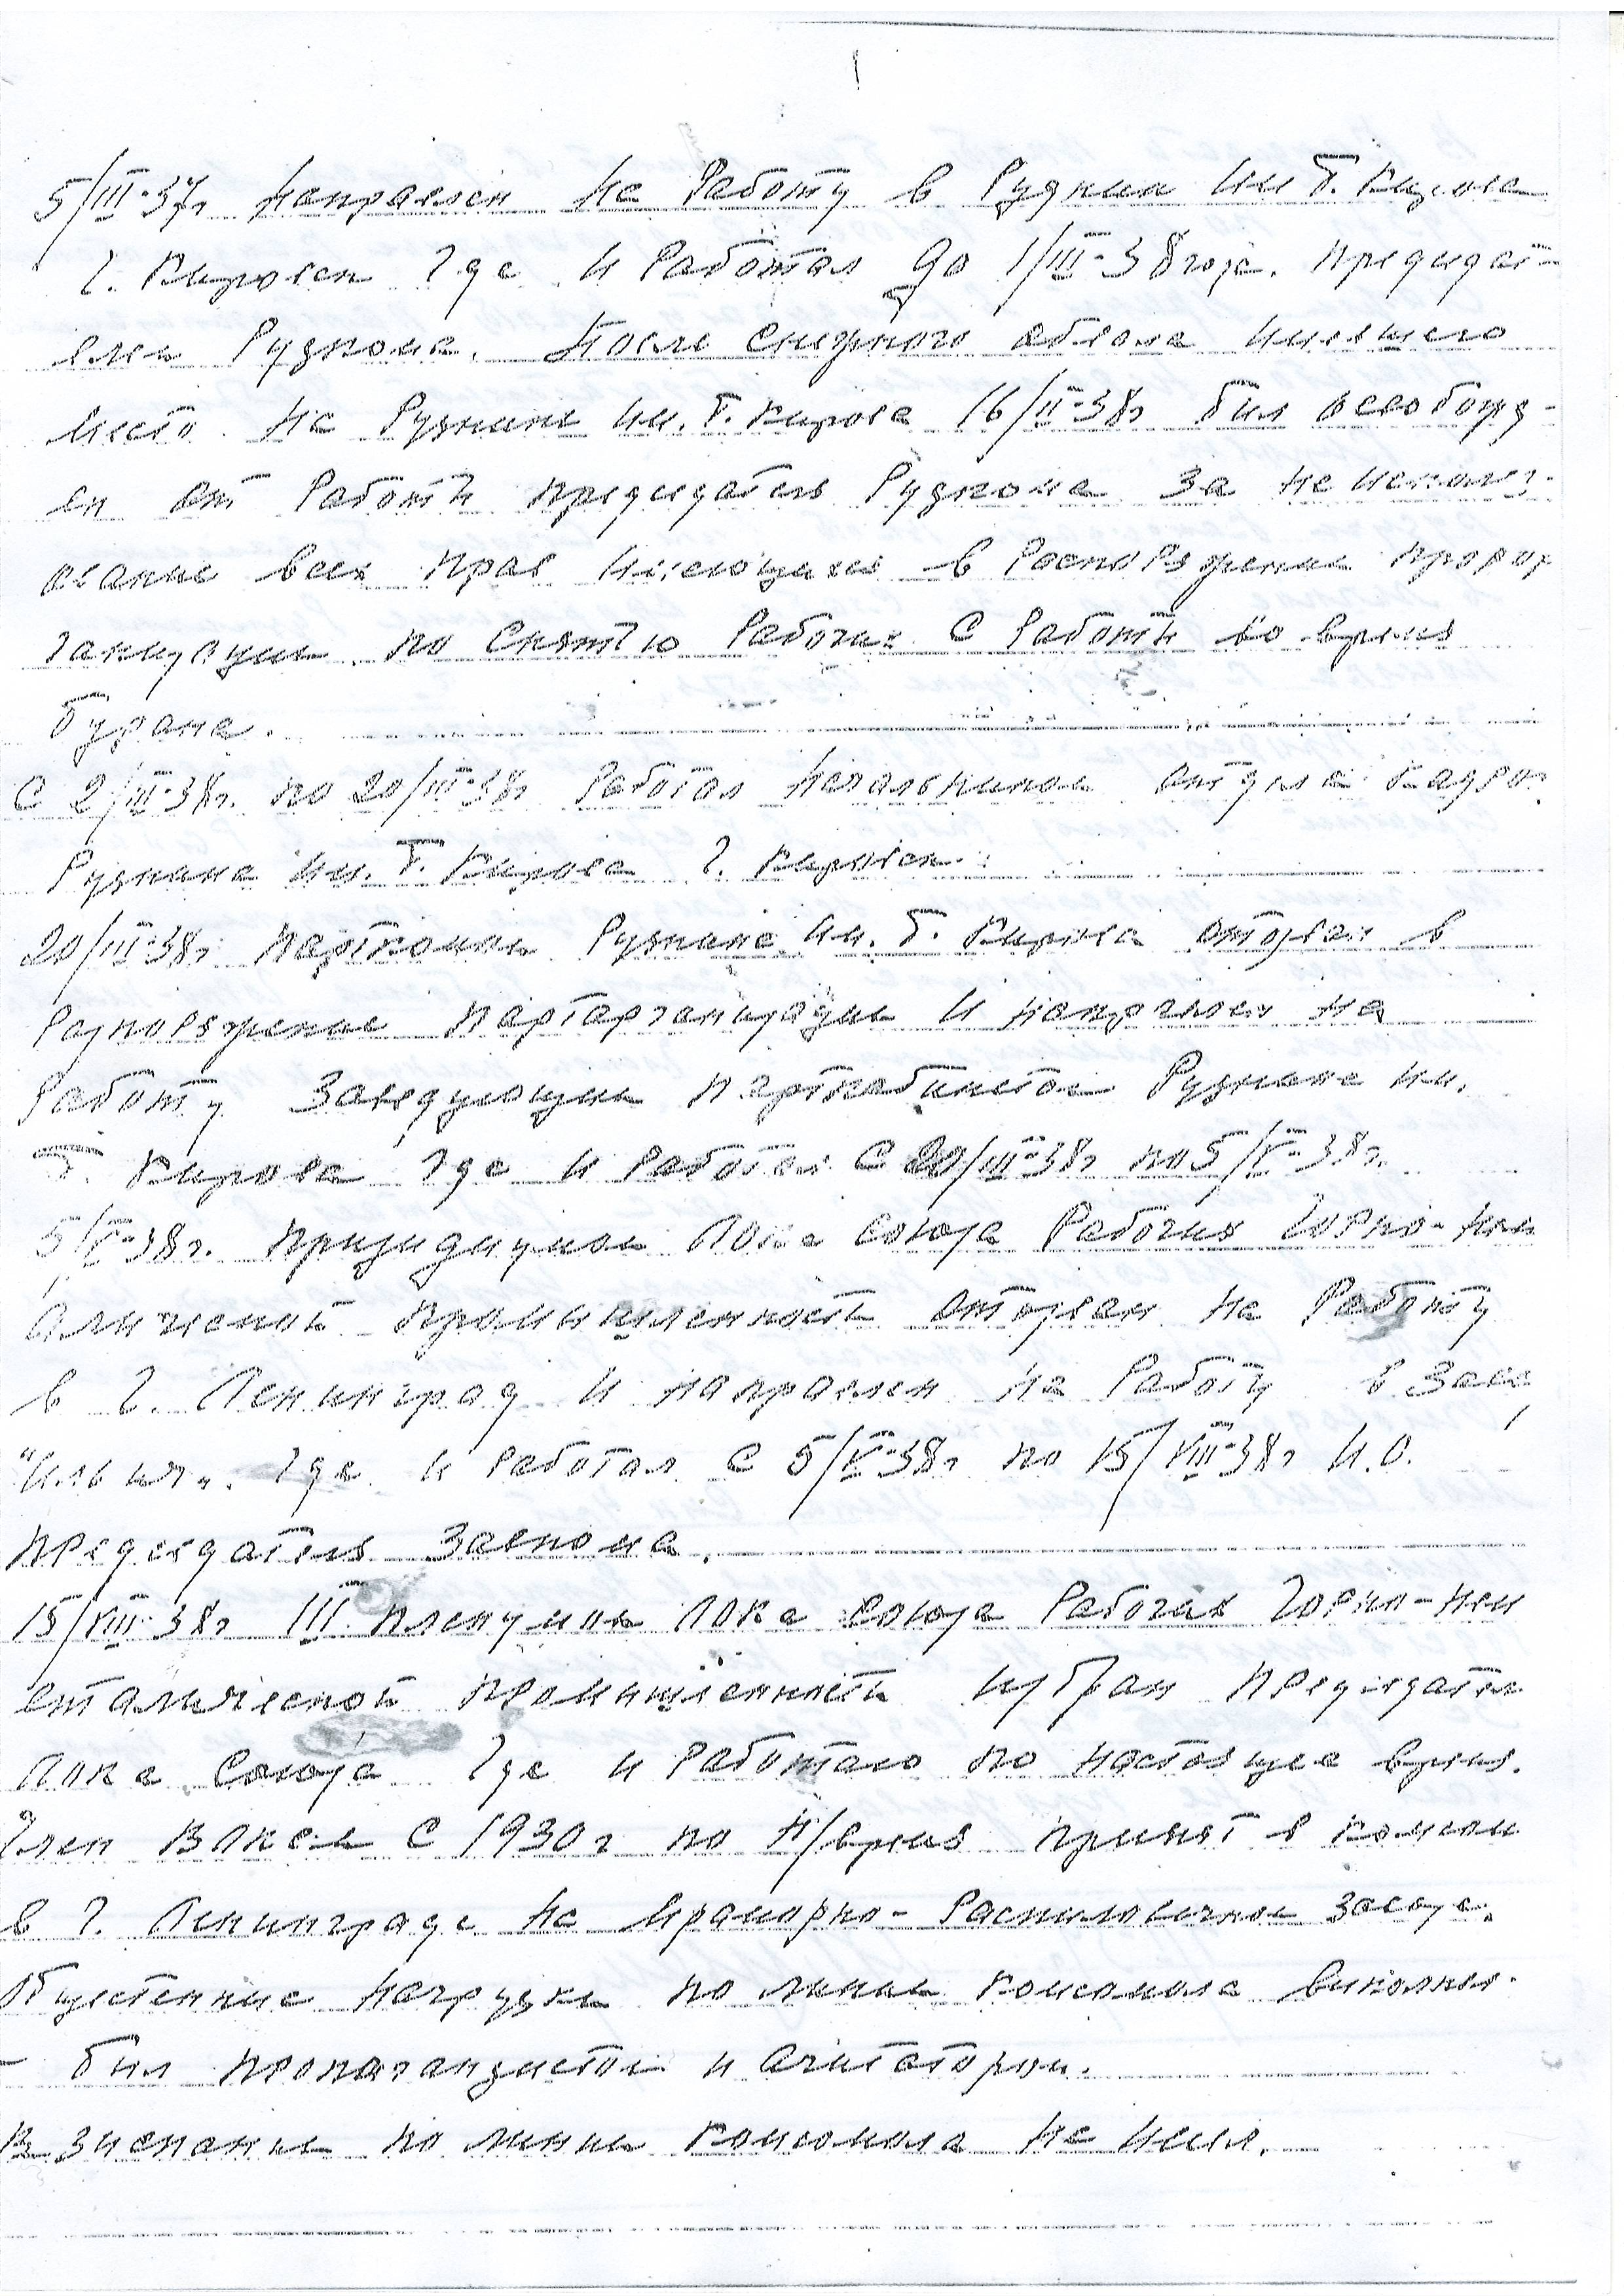 5/III-37г Направлен на Работу в Рудник им Т. Кирова
г. Кировск где и работал до 1/III-38 года. Председат-
елем Рудкома. После снежного обвала имевшего
место на Руднике им. Т. Кирова 16/II-38г был освобожд-
ен от Работы председатель Рудкома за не использ-
ование всех прав имеющихся в Распоряжение профор
ганизации по снятию Рабочих с Работы во время
бурана.
С 2/III-38г. по 20/III-38г Работал Начальником отдела кадров
Рудника им. Т. Кирова г. Кировск.
20/III-38г парткомом Рудника им. Т. Кирова отозван в
Распоряжение парторганизации и направлен на
Работу Заведующим парткабинетом Рудника им.
Т. Кирова где и работал С 20/III-38г по 5/V-38г.
5/V-38г. Призидиумом ЛОКа союза Рабочих Горно-нем
аличиской промышленности отозван на Работу
в г. Ленинград и направлен на Работу в Завод
"Ильич". где и работал с 5/V-38г по 15/VIII-38г И.О.
председатель Завкома.
15/VIII-38г III пленумом ЛОКа союза Рабочих Горно-нем
еталической промышленности избран председател
ЛОКа союза где и работаю по настоящее время.
Член ВЛКСМ с 1930г по Н/время принят в комсом
в г. Ленинграде на Мраморно-Распиловочном заводе.
Общественные нагрузки по линии комсомола выполнял
- был пропагандистом и агитатором.
Взыскание по линии комсомола не имел.